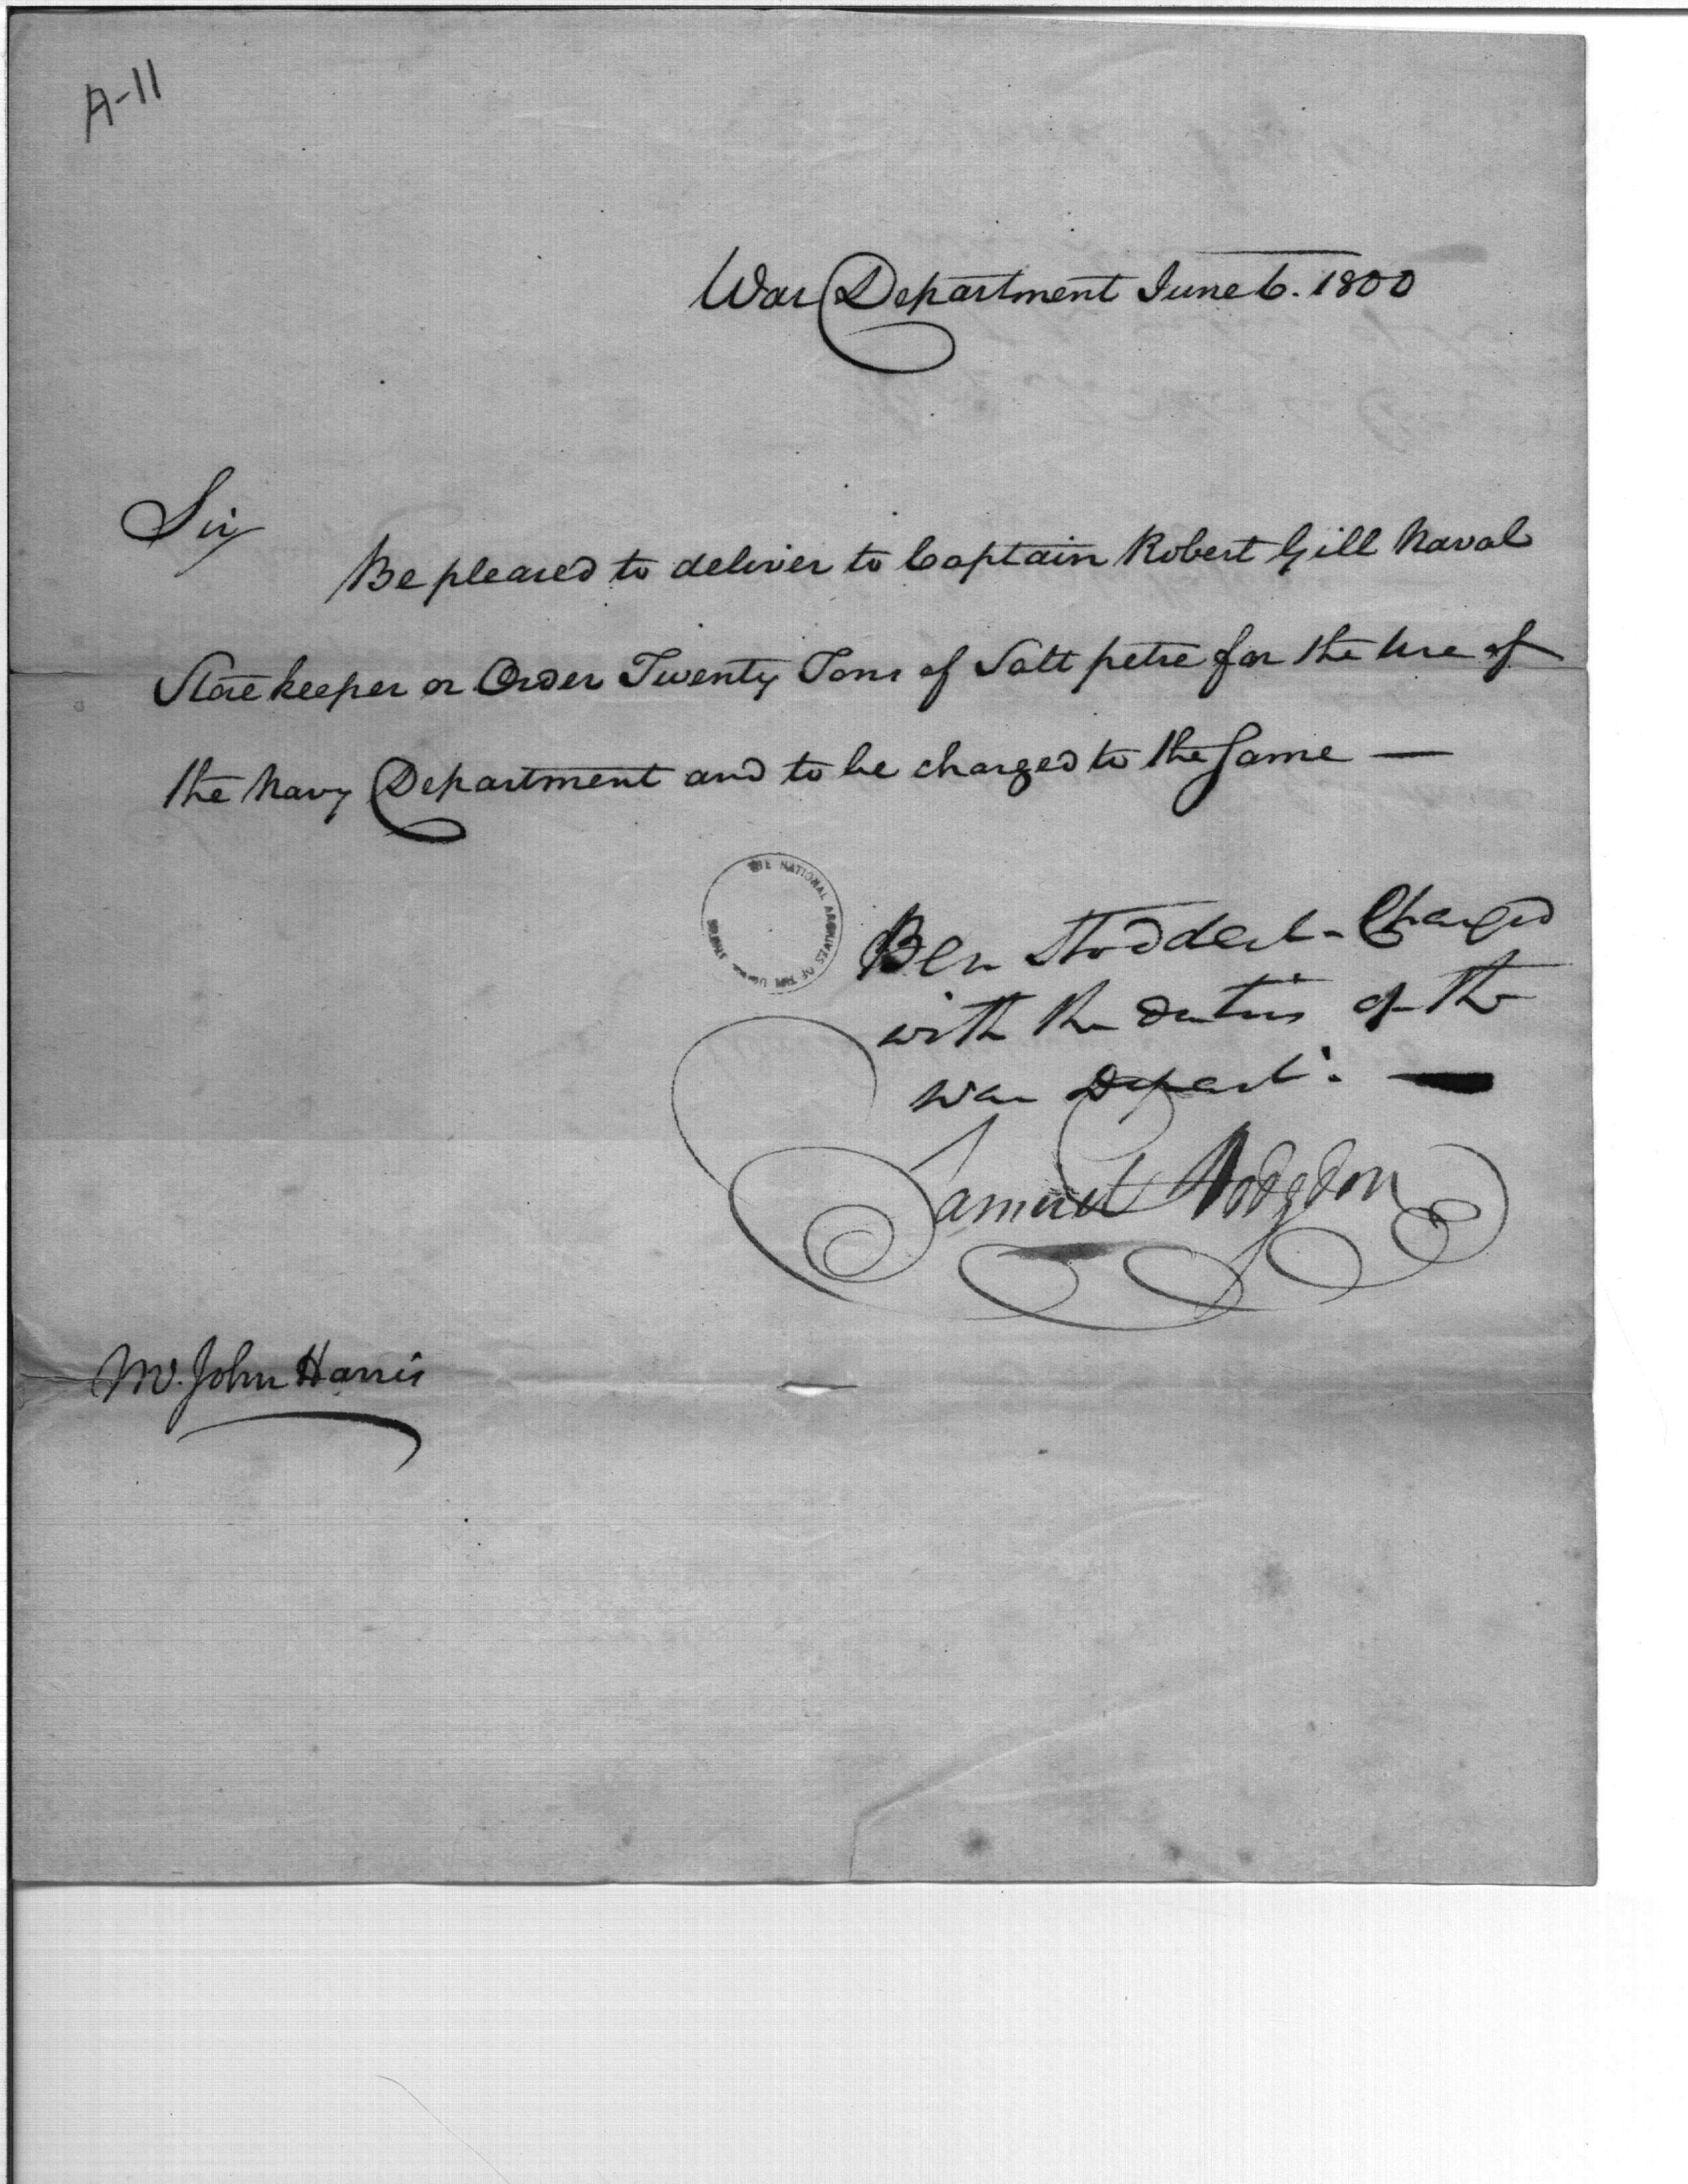 A-11
War Department June 6. 1800
Sir
Be pleased to deliver to Captain Robert Gill Naval
Store keeper or Order Twenty Tons of Salt petre for the Use of
the Navy Department and to be charged to the Same —
THE NATIONAL ARCHIVES OF THE UNITED STATES
Ben Stoddert - Charged
with the duties of the
War Depart.t —
Samuel Hodgdon
Mr. John Harris